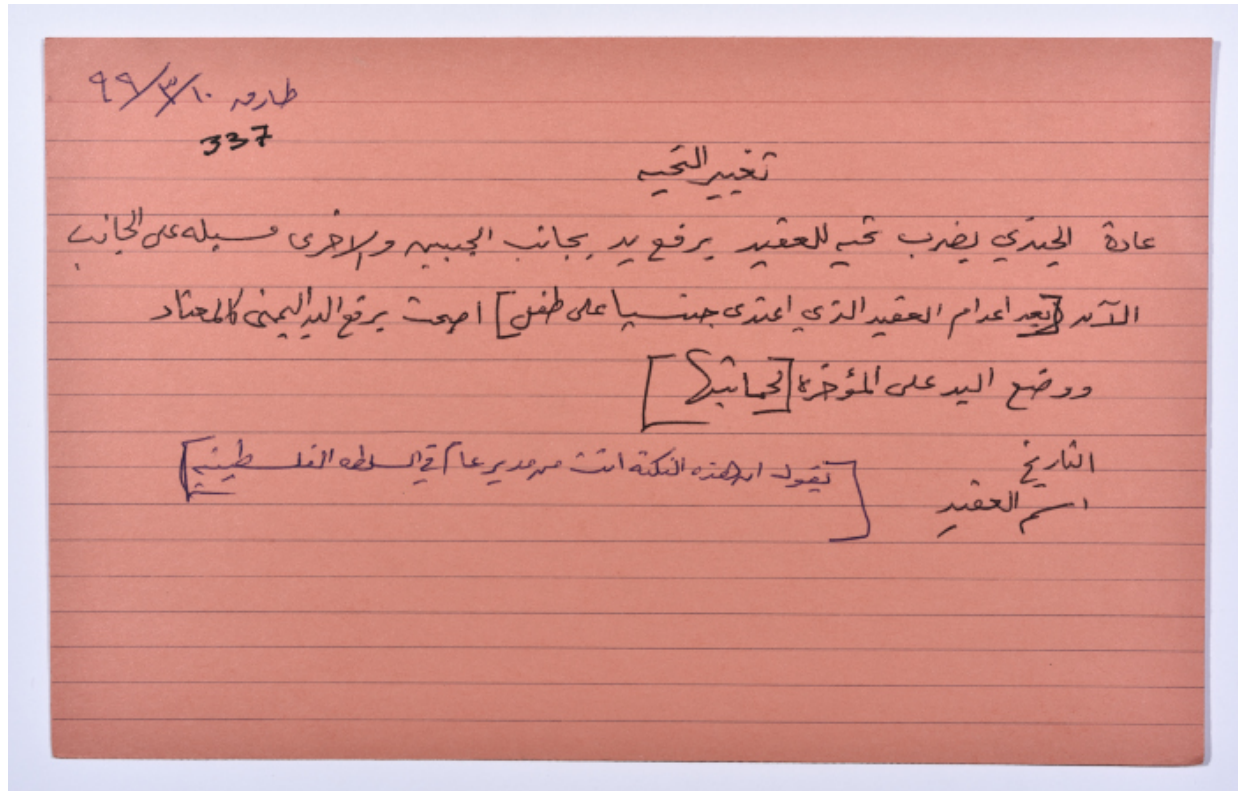 طارق ٩٩/٣/١٠
337
تغيير التحيه
عادة الجندي يضرب تحيه للعقيد برفع يد بجانب الجبين والاخرى مسبله على الجانب
الآن [بعد اعدام العقيد الذي اعتدى جنسيا على طفل] اصبحت برفع اليد اليمنى كالمعتاد
ووضع اليد على المؤخرة [لحمايتها]
التاريخ [تقول ان هذه النكتة اتت من مدير عام في السلطه الفلسطينيه]
اسم العقيد